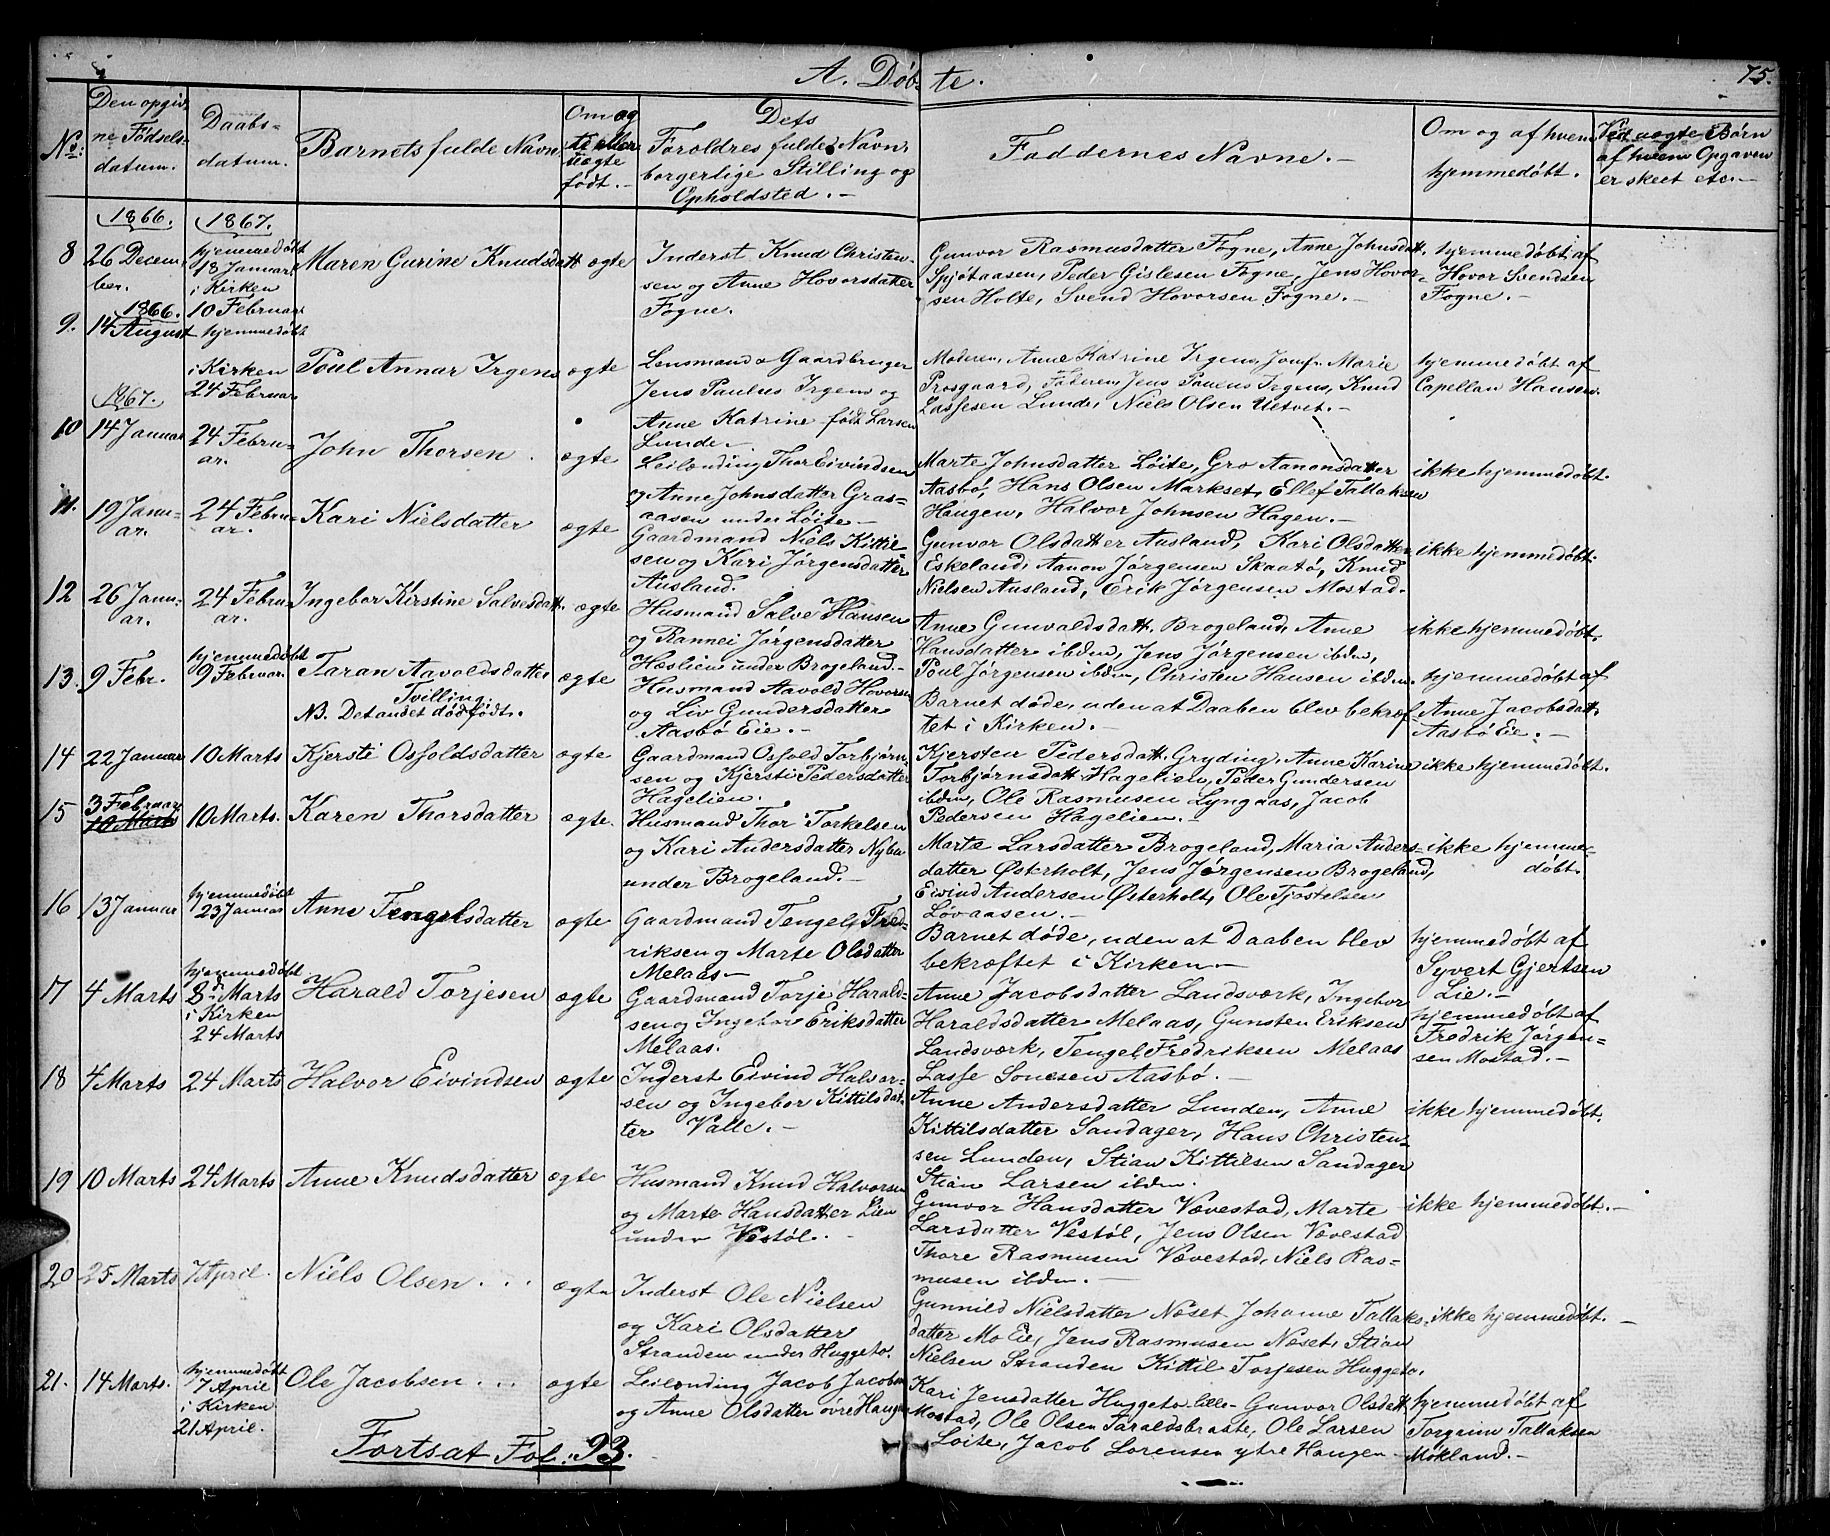 A. Døbte.
75.
No:
Den opgiv
ne Fødsels-
datum.
Daabs-
datum.
Barnets fulde Navn
Om æg
te eller
uægte
født.-
Dets
Forældres fulde Navn,
borgerlige Stilling og
Opholdsted.-
Faddernes Navne.-
Om og af hvem
hjemmedøbt.
Ved uægte Børn
af hvem Opgaven
er skeet etc.-
1866.
1867.
8
26 Decem
ber.
hjemmedøbt
18 Januar.
i Kirken
10 Februar
Maren Gurine Knudsdatt
ægte
Inderst Knud Christen-
sen og Anne Hovorsdatter
Fogne.
Gunvor Rasmusdatter Fogne, Anne Johnsdatt
Spjótaasen, Peder Gislesen Fogne, Jens Hovor-
sen Holte, Svend Hovorsen Fogne.-
hjemmedøbt af
Hovor Svendsen
Fogne.-
9.
1866.
14 August
hjemmedøbt
i Kirken
24 Februar
Poul Annar Irgens
ægte
Lensmand & Gaardbruger
Jens Paulus Irgens og
Anne Katrine født Larsen
Lunde.-
Moderen, Anne Katrine Irgens, Jomfr. Marie
Prosgaard, Faderen Jens Paulus Irgens, Knud
Lassesen Lunde, Niels Olsen Uetvet.-
hjemmedøbt af
Capellan Hansen.
1867.
10
14 Januar
24 Febru-
ar.
John Thorsen.
ægte
Leilænding Thor Eivindsen
og Anne Johnsdatter Gras-
aasen under Løite.-
Marte Johnsdatter Løite, Gro Aanonsdatter
Aasbø, Hans Olsen Markset, Ellef Tallaksen
Haugen, Halvor Johnsen Hagen.-
ikke hjemmedøbt.
11.
19 Janu-
ar.
24 Febru-
ar.
Kari Nielsdatter
ægte
Gaardmand Niels Kittil-
sen og Kari Jørgensdatter
Ausland.
Gunvor Olsdatter Ausland, Kari Olsdatter
Eskeland, Aanon Jørgensen Skaatø, Knud
Nielsen Ausland, Erik Jørgensen Mostad.
ikke hjemmedøbt.
12
26 Janu-
ar.
24 Febru
ar.
Ingebor Kirstine Salvesdatt.
ægte
Husmand Salve Hansen
og Rannei Jørgensdatter
Hæslien under Brogeland.-
Anne Gunvaldsdatt. Brogeland, Anne
Hansdatter ibdm, Jens Jørgensen ibdm,
Poul Jørgensen ibdm, Christen Hansen ibdm.
ikke hjemmedøbt.
13.
9 Febr.
hjemmedøbt
9 Februar.
Taran Aavoldsdatter
Tvilling.
NB. Det andet dødfødt.
ægte
Husmand Aavold Hovorsen
og Liv Gundersdatter
Aasbø Eie.-
Barnet døde, uden at Daaben blev bekræf-
tet i Kirken.-
hjemmedøbt af
Anne Jacobsdatt.
Aasbø Eie.-
14
22 Januar
10 Marts
Kjersti Osfoldsdatter
ægte
Gaardmand Osfold Torbjørn-
sen og Kjersti Pedersdatter
Hagelien.
Kjersten Pedersdatt. Gryding, Anne Karine
Torbjørnsdatt. Hagelien, Peder Gundersen
ibdm, Ole Rasmusen Lyngaas, Jacob
Pedersen Hagelien.-
ikke hjemmedøbt.
15
3 Februar
10 Marts
10 Marts.
Karen Thorsdatter
ægte.
Husmand Thor Torkelsen
og Kari Andersdatter Nybu
under Brogeland.-
Marte Larsdatter Brogeland, Maria Anders-
datter Østerholt, Jens Jørgensen Brogeland,
Eivind Andersen Østerholt, Ole Tjøstelsen
Løvaasen.-
ikke hjemme-
døbt.
16
13 Januar
hjemmedøbt
23 Januar
Anne Tengelsdatter
ægte
Gaardmand Tengel Fred-
riksen og Marte Olsdatter
Melaas-
Barnet døde, uden at Daaben blev
bekræftet i Kirken.-
hjemmedøbt af
Syvert Gjertsen
Lie.-
17
4 Marts
hjemmedøbt
8 Marts
i Kirken
24 Marts
Harald Torjesen
ægte
Gaardmand Torje Harald-
sen og Ingebor Eriksdatter
Melaas.
Anne Jacobsdatter Landsværk, Ingebor
Haraldsdatter Melaas, Gunsten Eriksen
Landsværk, Tengel Fredriksen Melaas
Lasse Sonesen Aasbø.-
hjemmedøbt af
Fredrik Jørgen-
sen Mostad.-
18
4 Marts
24 Marts
Halvor Eivindsen
ægte
Inderst Eivind Halvor-
sen og Ingebor Kittilsdat-
ter Valle.-
Anne Andersdatter Lunden, Anne
Kittilsdatter Sandager, Hans Christen-
sen Lunden, Stian Kittilsen Sandager
Stian Larsen ibdm.
ikke hjemmedøbt.
19
10 Marts
24 Marts
Anne Knudsdatter
ægte
Husmand Knud Halvorsen
og Marte Hansdatter Lien
under Vestøl.-
Gunvor Hansdatter Vævestad, Marte
Larsdatter Vestøl, Jens Olsen Vævestad
Thore Rasmusen Vævestad, Niels Ras-
musen ibdm.-
ikke hjemmedøbt.-
20
25 Marts
7 April.
Niels Olsen...
ægte
Inderst Ole Nielsen
og Kari Olsdatter
Stranden under Huggeto.
Gunnild Nielsdatter Næset, Johanne Tallaks-
datter Mo Eie, Jens Rasmusen Næset, Stian
Nielsen Stranden Kittil Torjesen Huggeto.
ikke hjemmedøbt.-
21.
14 Marts.
hjemmedøbt
7 April
i Kirken
21 April.
Ole Jacobsen...
ægte
Leilænding Jacob Jacobsen
og Anne Olsdatter øvre Haugen
Kari Jensdatter Huggeto lille- Gunvor Olsdatt
Mostad, Ole Olsen Faraldsbraate, Ole Larsen
Løite, Jacob Lorensen ytre Haugen-
hjemmedøbt af
Torgrim Tallaksen
Mòkland.-
Fortsat Fol: 93.